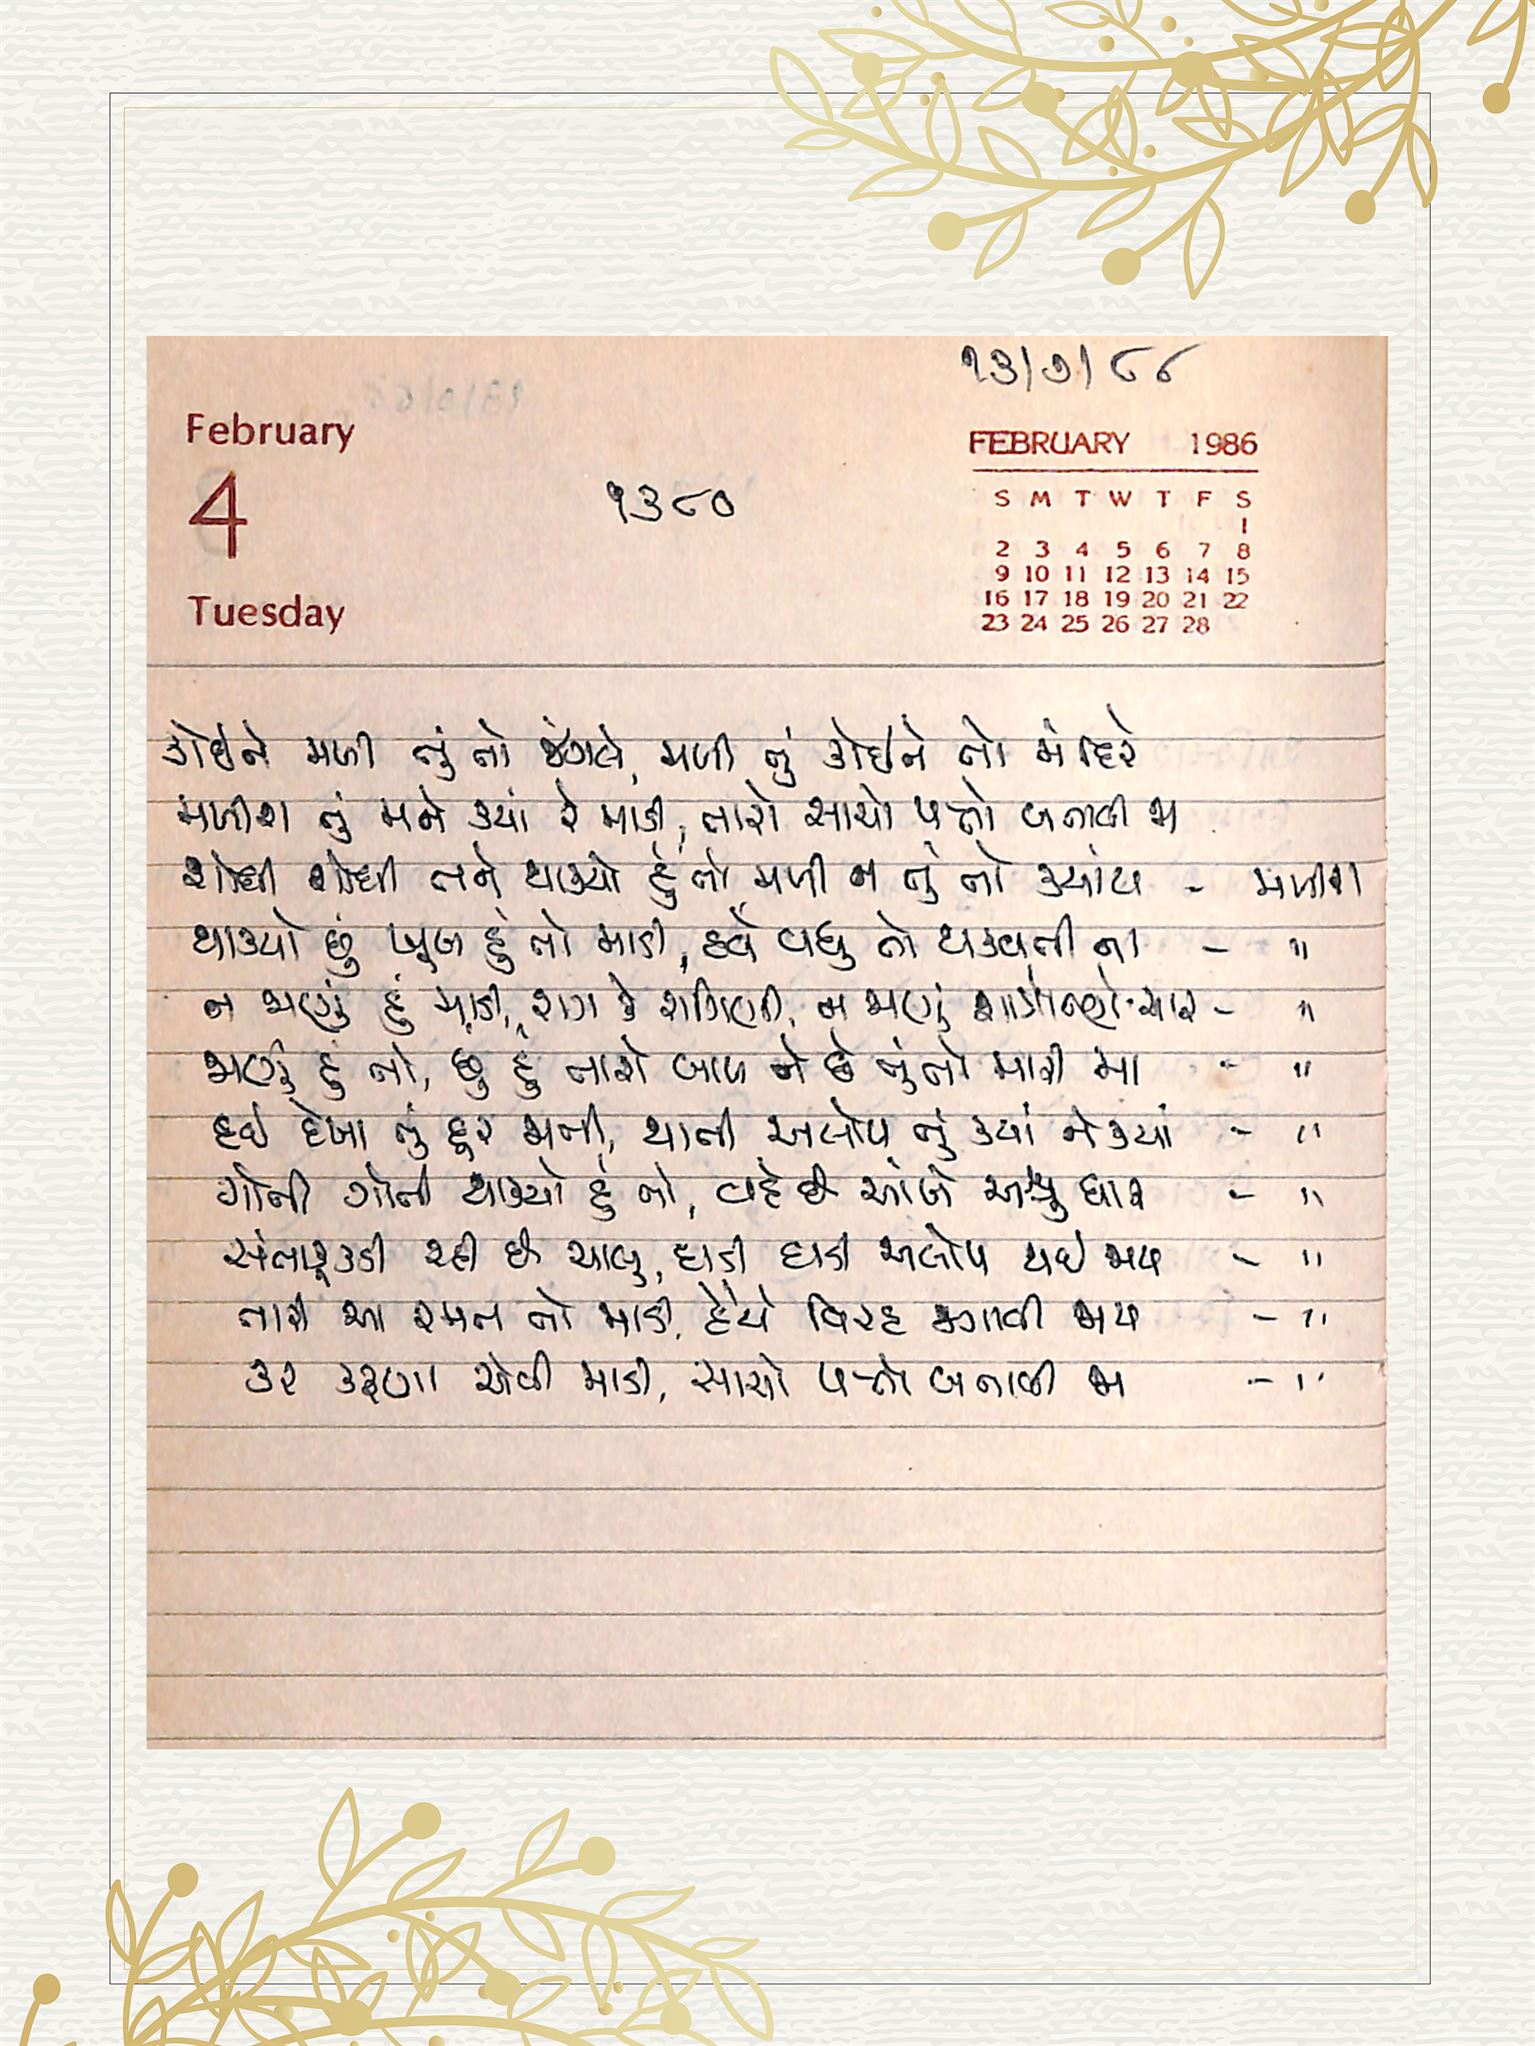 ૧૩/૭/૮૮
February
4
Tuesday
૧૩૮૦
FEBRUARY 1986
S M T W T F S
1
2 3 4 5 6 7 8
9 10 11 12 13 14 15
16 17 18 19 20 21 22
23 24 25 26 27 28
કોઈને મળી તું તો જંગલે, મળી તું કોઈને તો મંદિરે
મળીશ તું મને ક્યાં રે માડી, તારો સાચો પત્તો બતાવી જા
શોધી શોધી તને થાક્યો હું તો, મળી ન તું તો ક્યાંય - મળીશ
થાક્યો છું ખૂબ હું તો માડી, હવે વધુ તો થકવતી ના - "
ન જાણું હું માડી, રાગ કે રાગિણી, ન જાણું - "
જાણું હું તો, છું હું તારો બાળ ને છે તું તો મારી મા - "
દઈ દેખા તું દૂર ભાગી, થાતી અલોપ તું ક્યાં ને ક્યાં - "
ગોતી ગોતી થાક્યો હું તો, વહે છે આંખે અશ્રુધાર - "
સંતાકૂકડી રહી છે ચાલુ, ઘડી ઘડી અલોપ થઈ જાય - "
તારી આ રમત તો માડી, હૈયે વિરહ જગાવી જાય - "
કર કરૂણા એવી માડી, સાચો પત્તો બતાવી જા - "